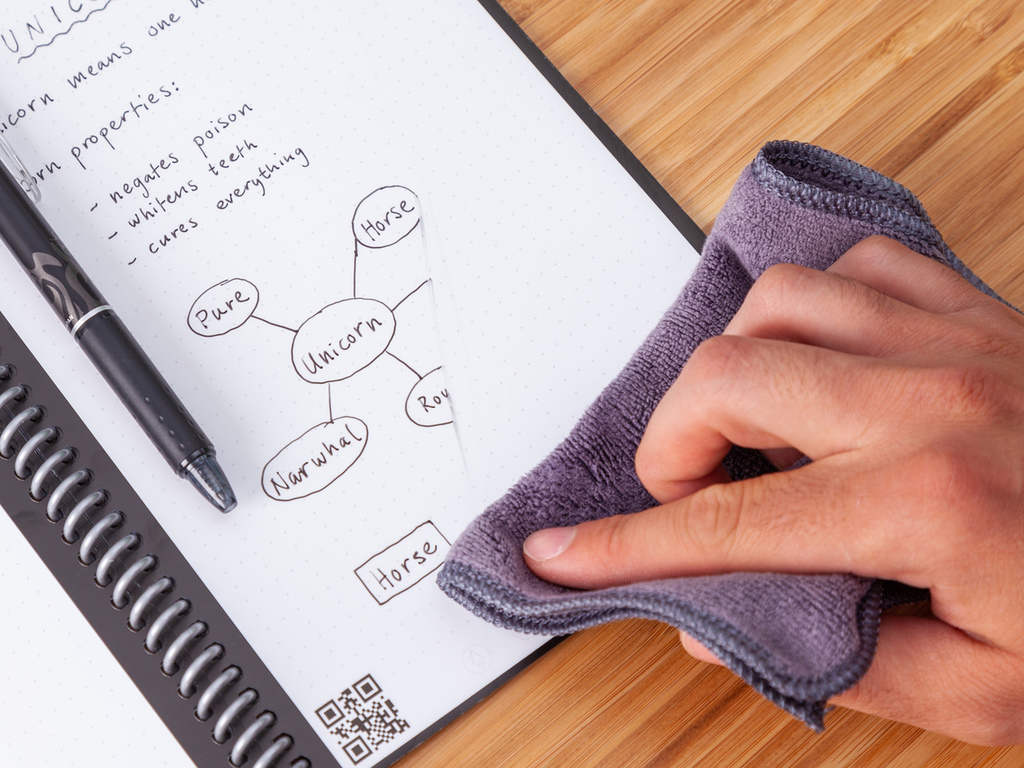 UNIC
means one
properties:
- negates poison
- whitens teeth
- cures everything
Horse
Pure
Unicorn
Rou
Narwhal
Horse